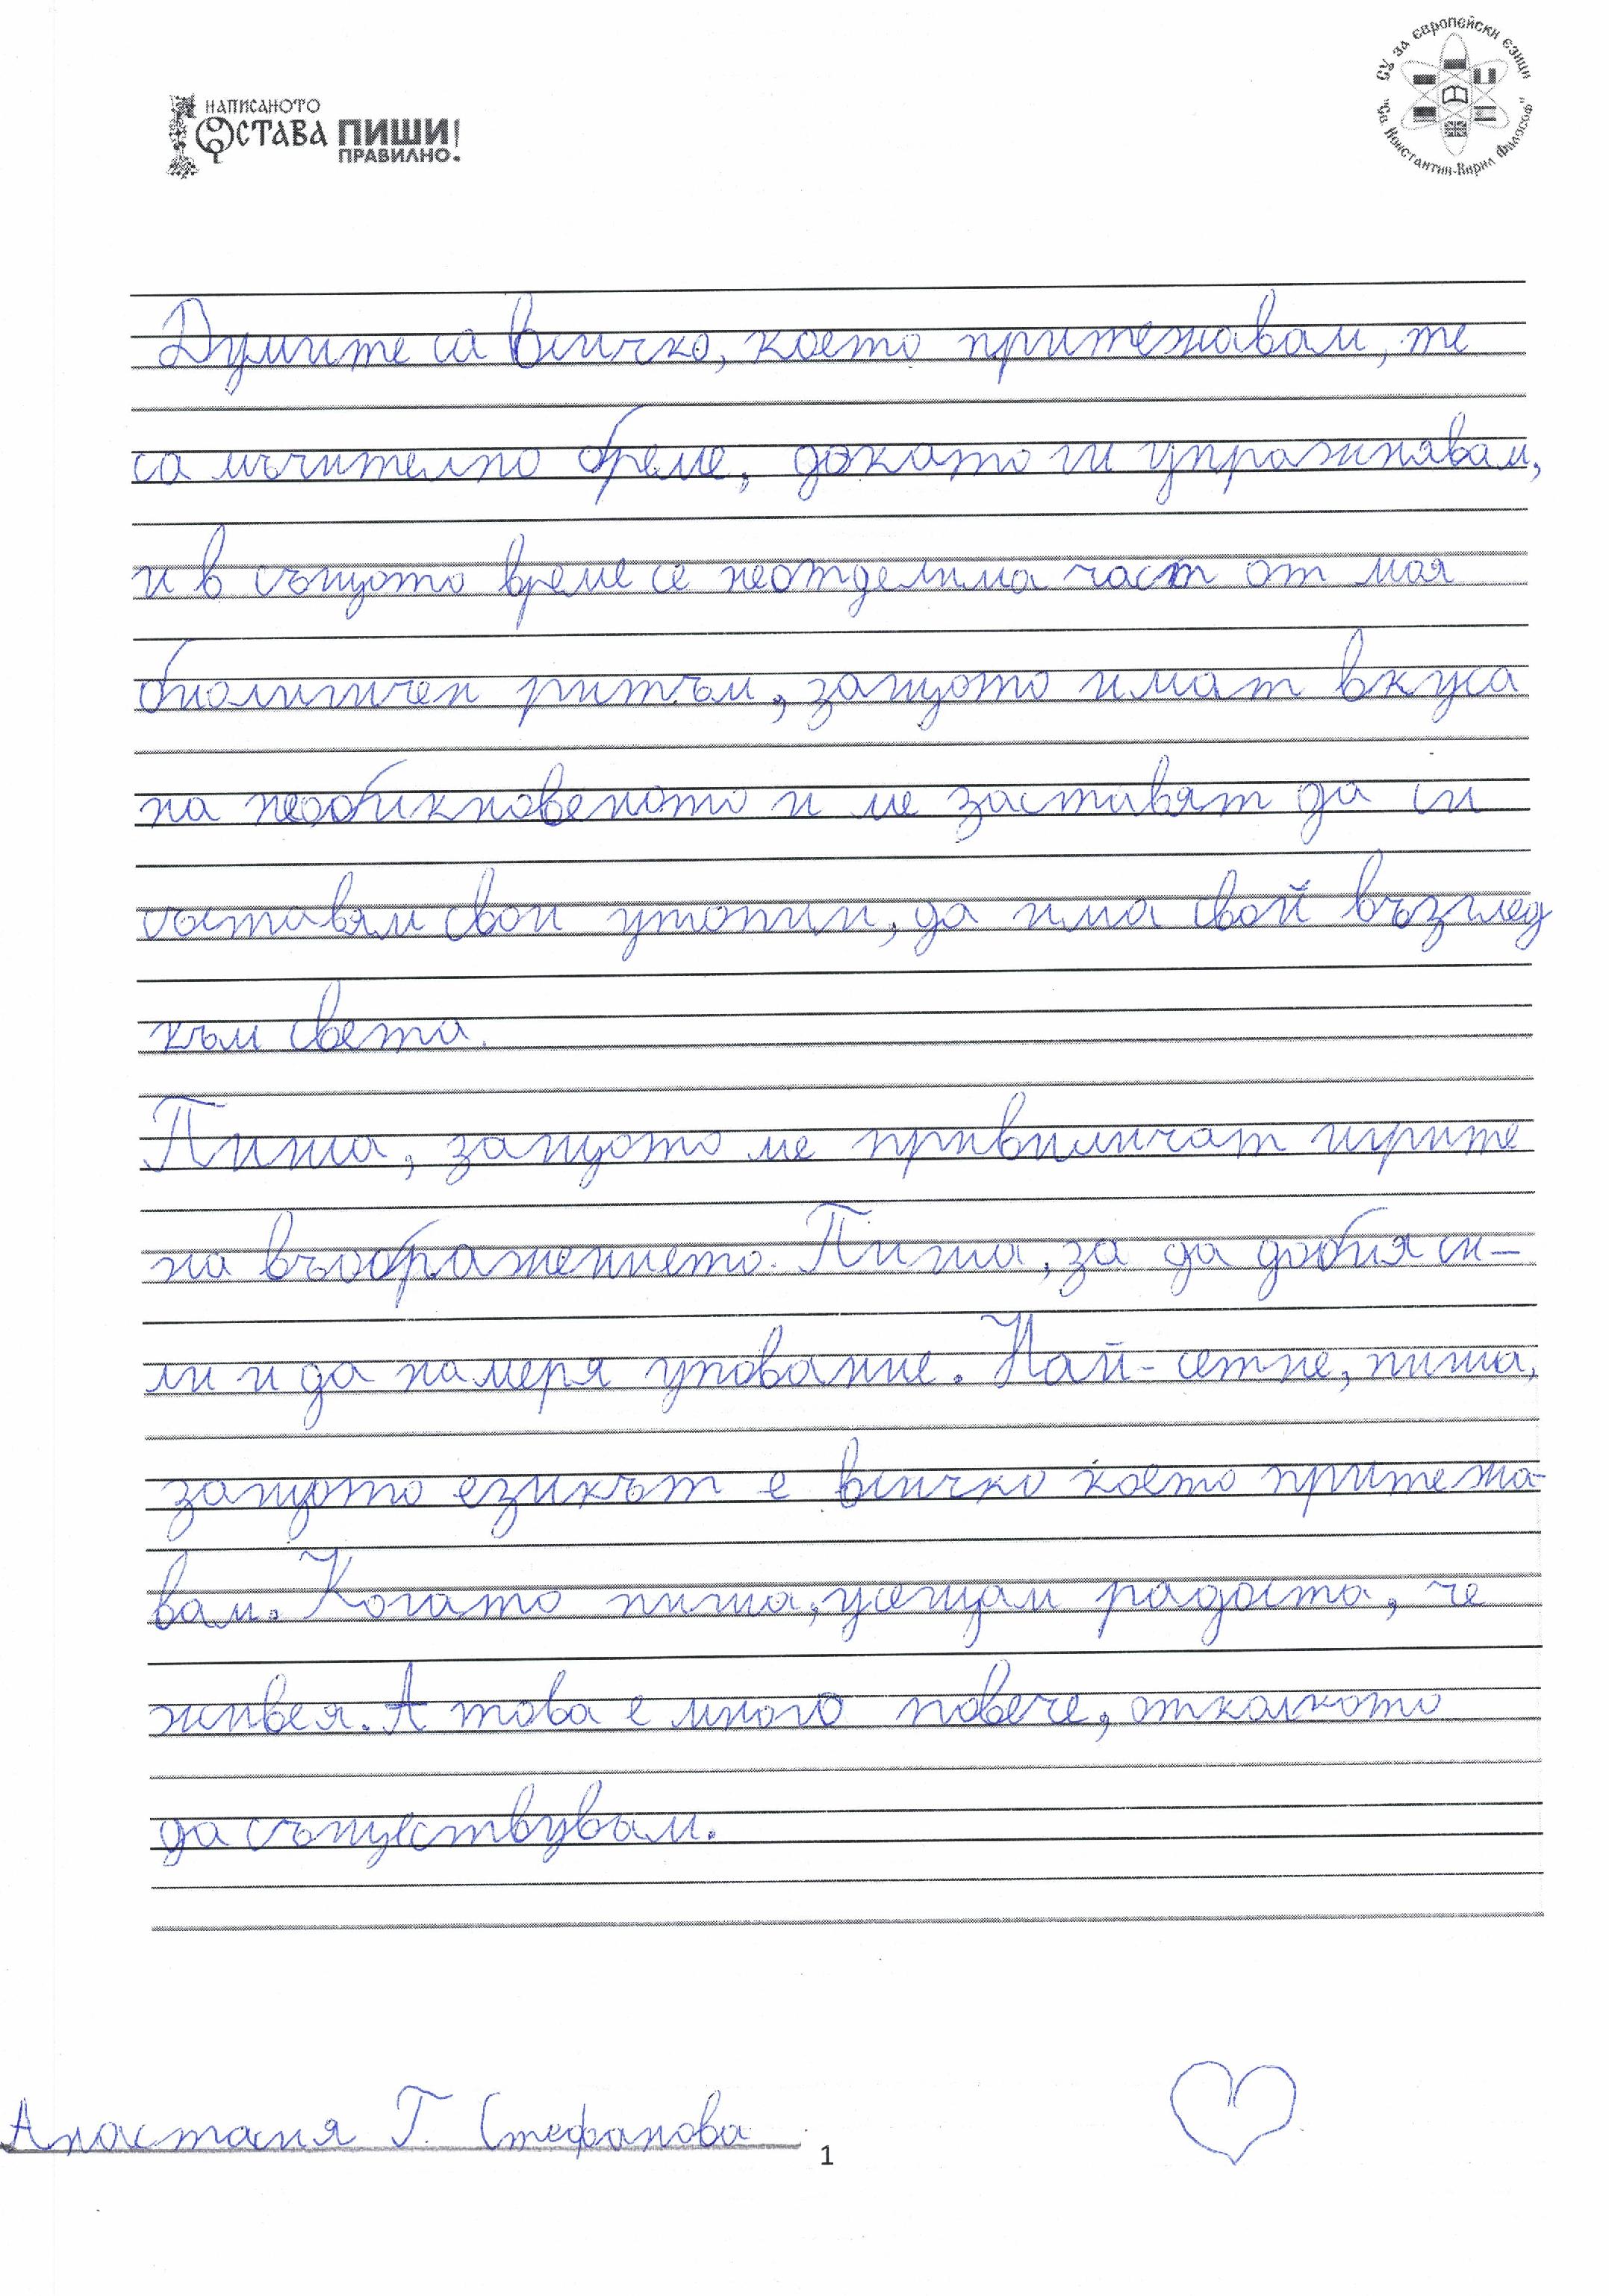 НАПИСАНОТО
ОСТАВА ПИШИ!
ПРАВИЛНО.
СУ за европейски езици
"Св. Константин-Кирил Философ"
Думите са всичко, което притежавам, те
са мъчително бреме, докато ги упражнявам,
и в същото време се неотделима част от моя
биолигичен ритъм, защото имат вкуса
на необикновеното и ме заставят да си
съставям свои утопии, да има свой възглед
към света.
Пиша, защото ме привиличат игрите
на въображението. Пиша, за да добия си-
ли и да намеря упование. Най-сетне, пиша,
защото езикът е всичко което притежа-
вам. Когато пиша, усещам радоста, че
живея. А това е много повече, отколкото
да съществувам.
Анастасия Г. Стефанова
1